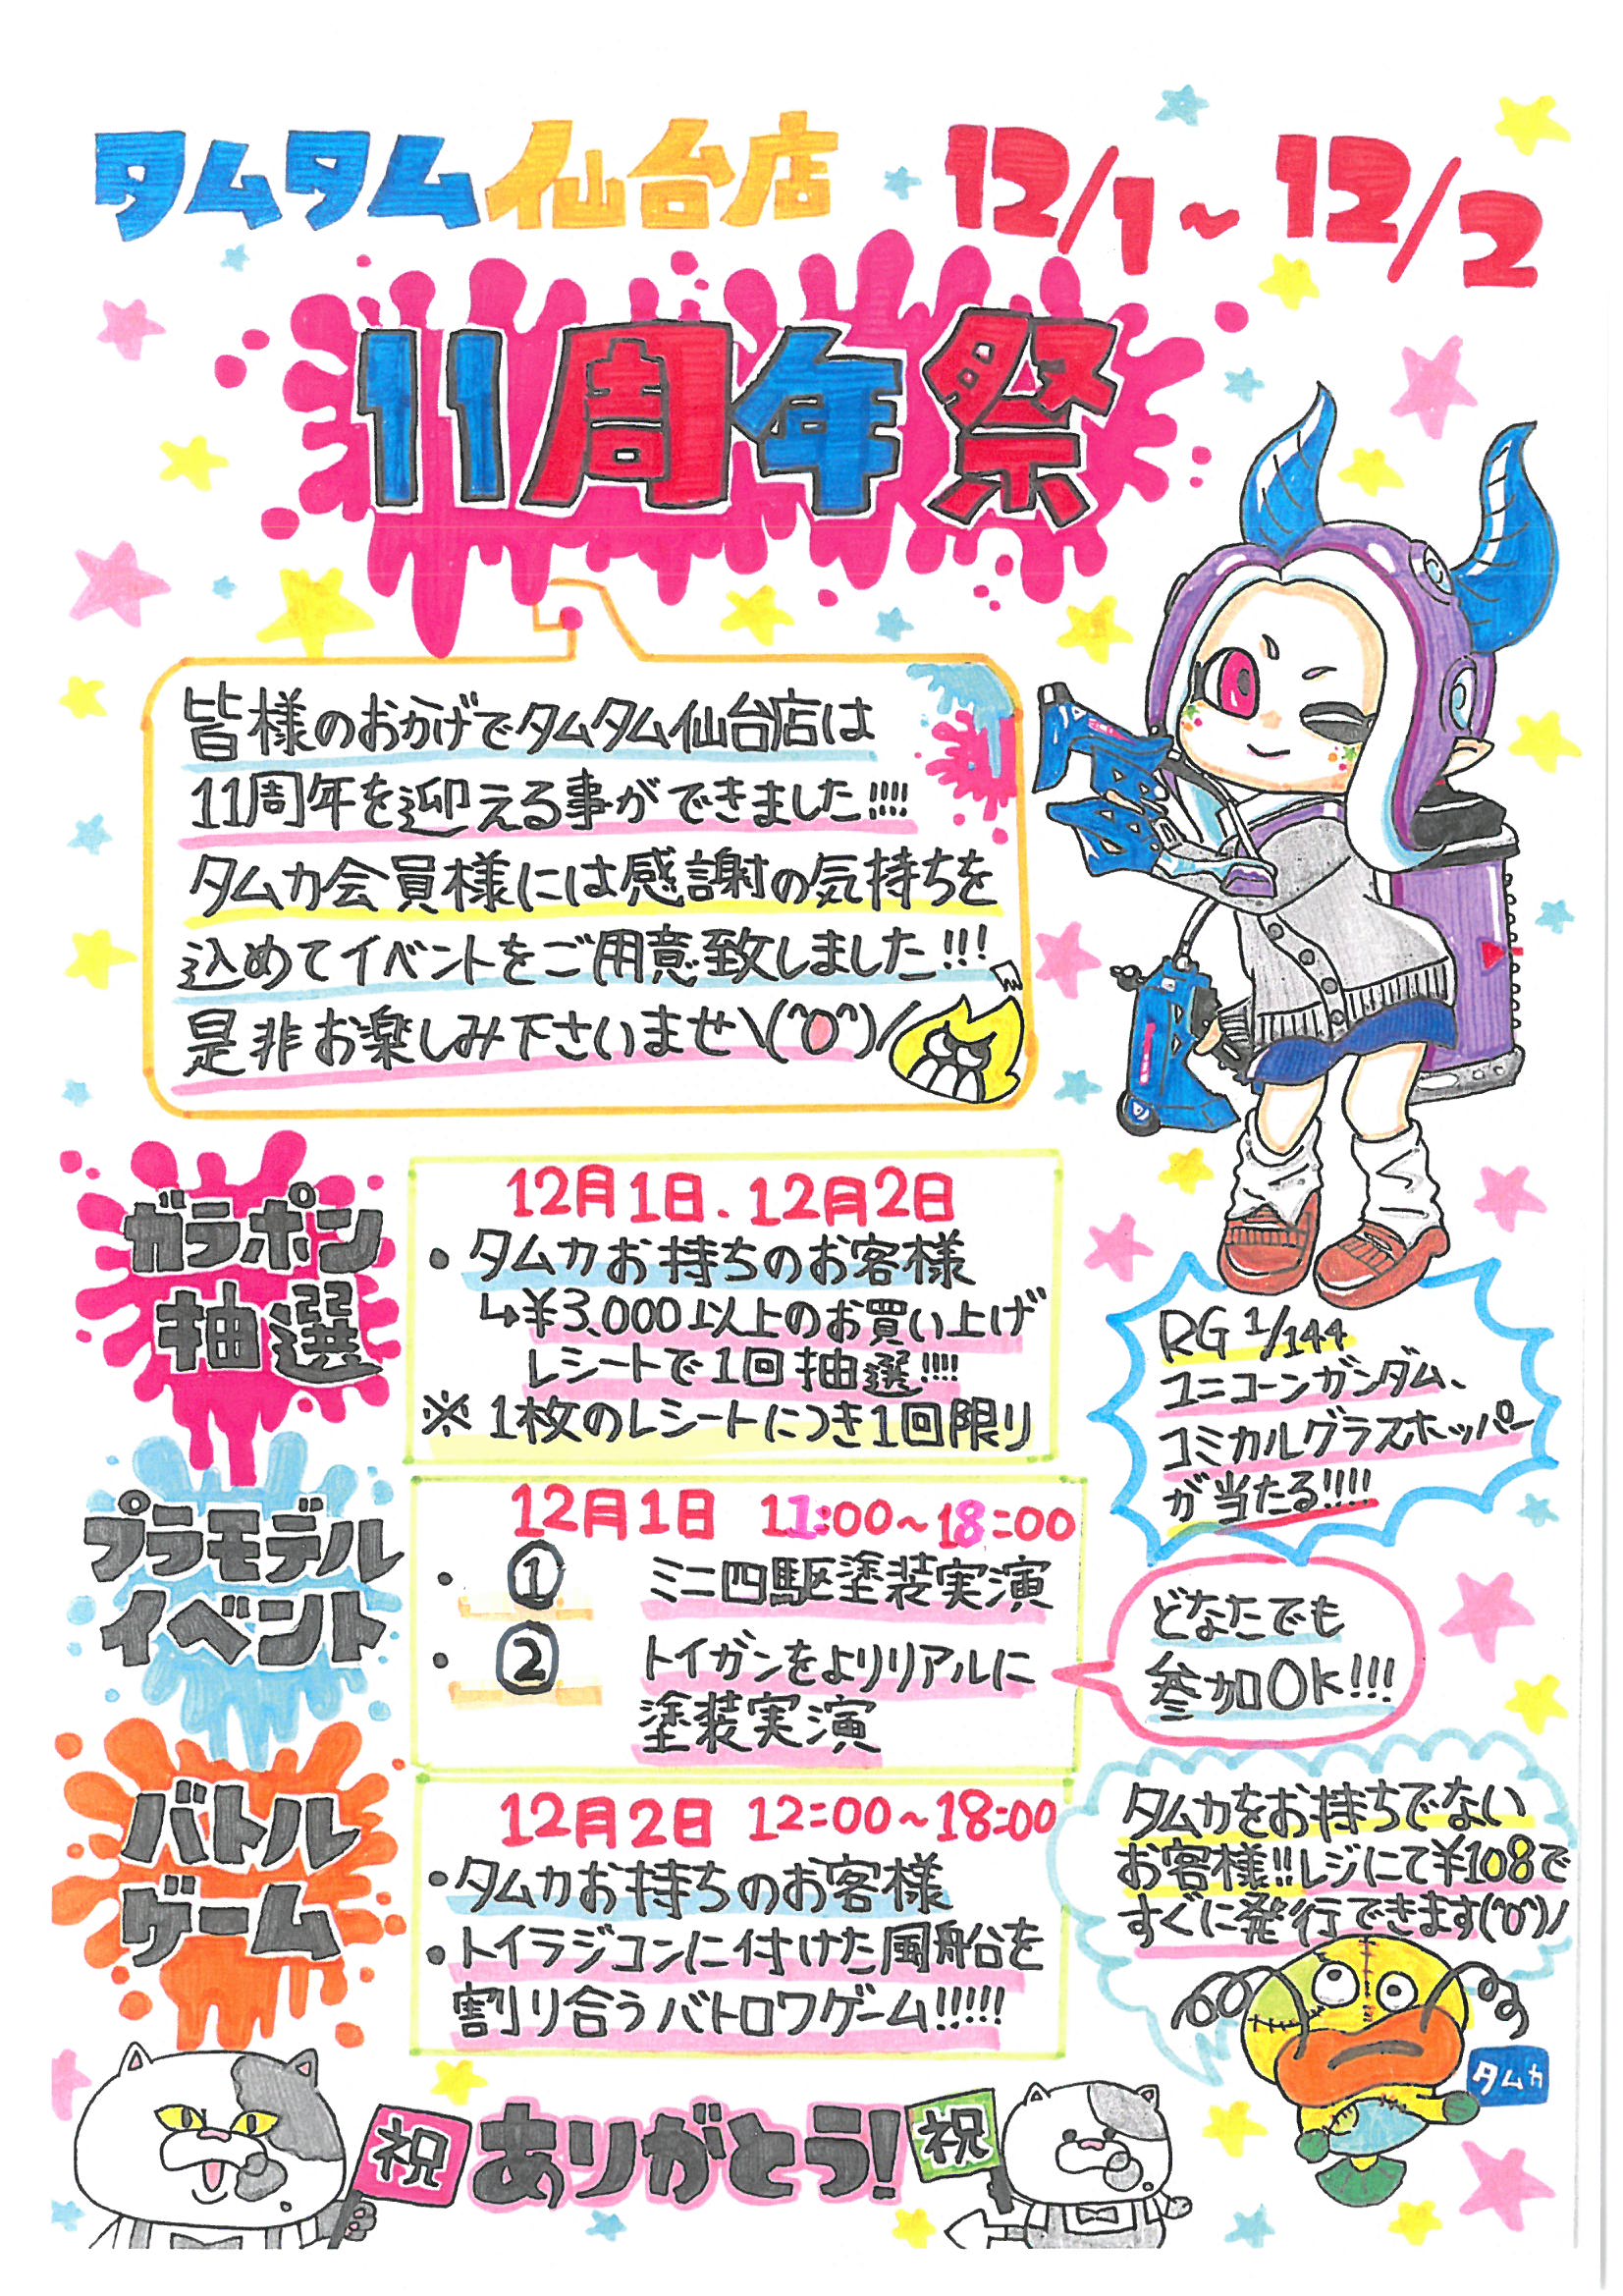 タムタム仙台店 12/1~12/2
11周年祭
皆様のおかげでタムタム仙台店は
11周年を迎える事ができました!!!!
タムカ会員様には感謝の気持ちを
込めてイベントをご用意致しました!!!
是非お楽しみ下さいませ\(^0^)/
ガラポン
抽選
12月1日.12月2日
・タムカお持ちのお客様
↳¥3,000以上のお買い上げ
レシートで1回抽選!!!!
※1枚のレシートにつき1回限り
RG 1/144
ユニコーンガンダム、
コミカルグラスホッパー
が当たる!!!!
プラモデル
イベント
12月1日 11:00~18:00
・① ミニ四駆塗装実演
・② トイガンをよりリアルに
塗装実演
どなたでも
参加OK!!!
バトル
ゲーム
12月2日 12:00~18:00
・タムカお持ちのお客様
・トイラジコンに付けた風船を
割り合うバトロワゲーム!!!!!
タムカをお持ちでない
お客様!!レジにて¥108で
すぐに発行できます(^0^)ノ
タムカ
祝 ありがとう! 祝